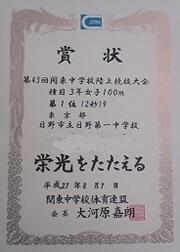 賞状
第43回関東中学校陸上競技大会
種目 3年女子100m
第1位 12秒19
東京都
日野市立日野第一中学校
栄光をたたえる
平成27年8月7日
関東中学校体育連盟
会長 大河原嘉朗